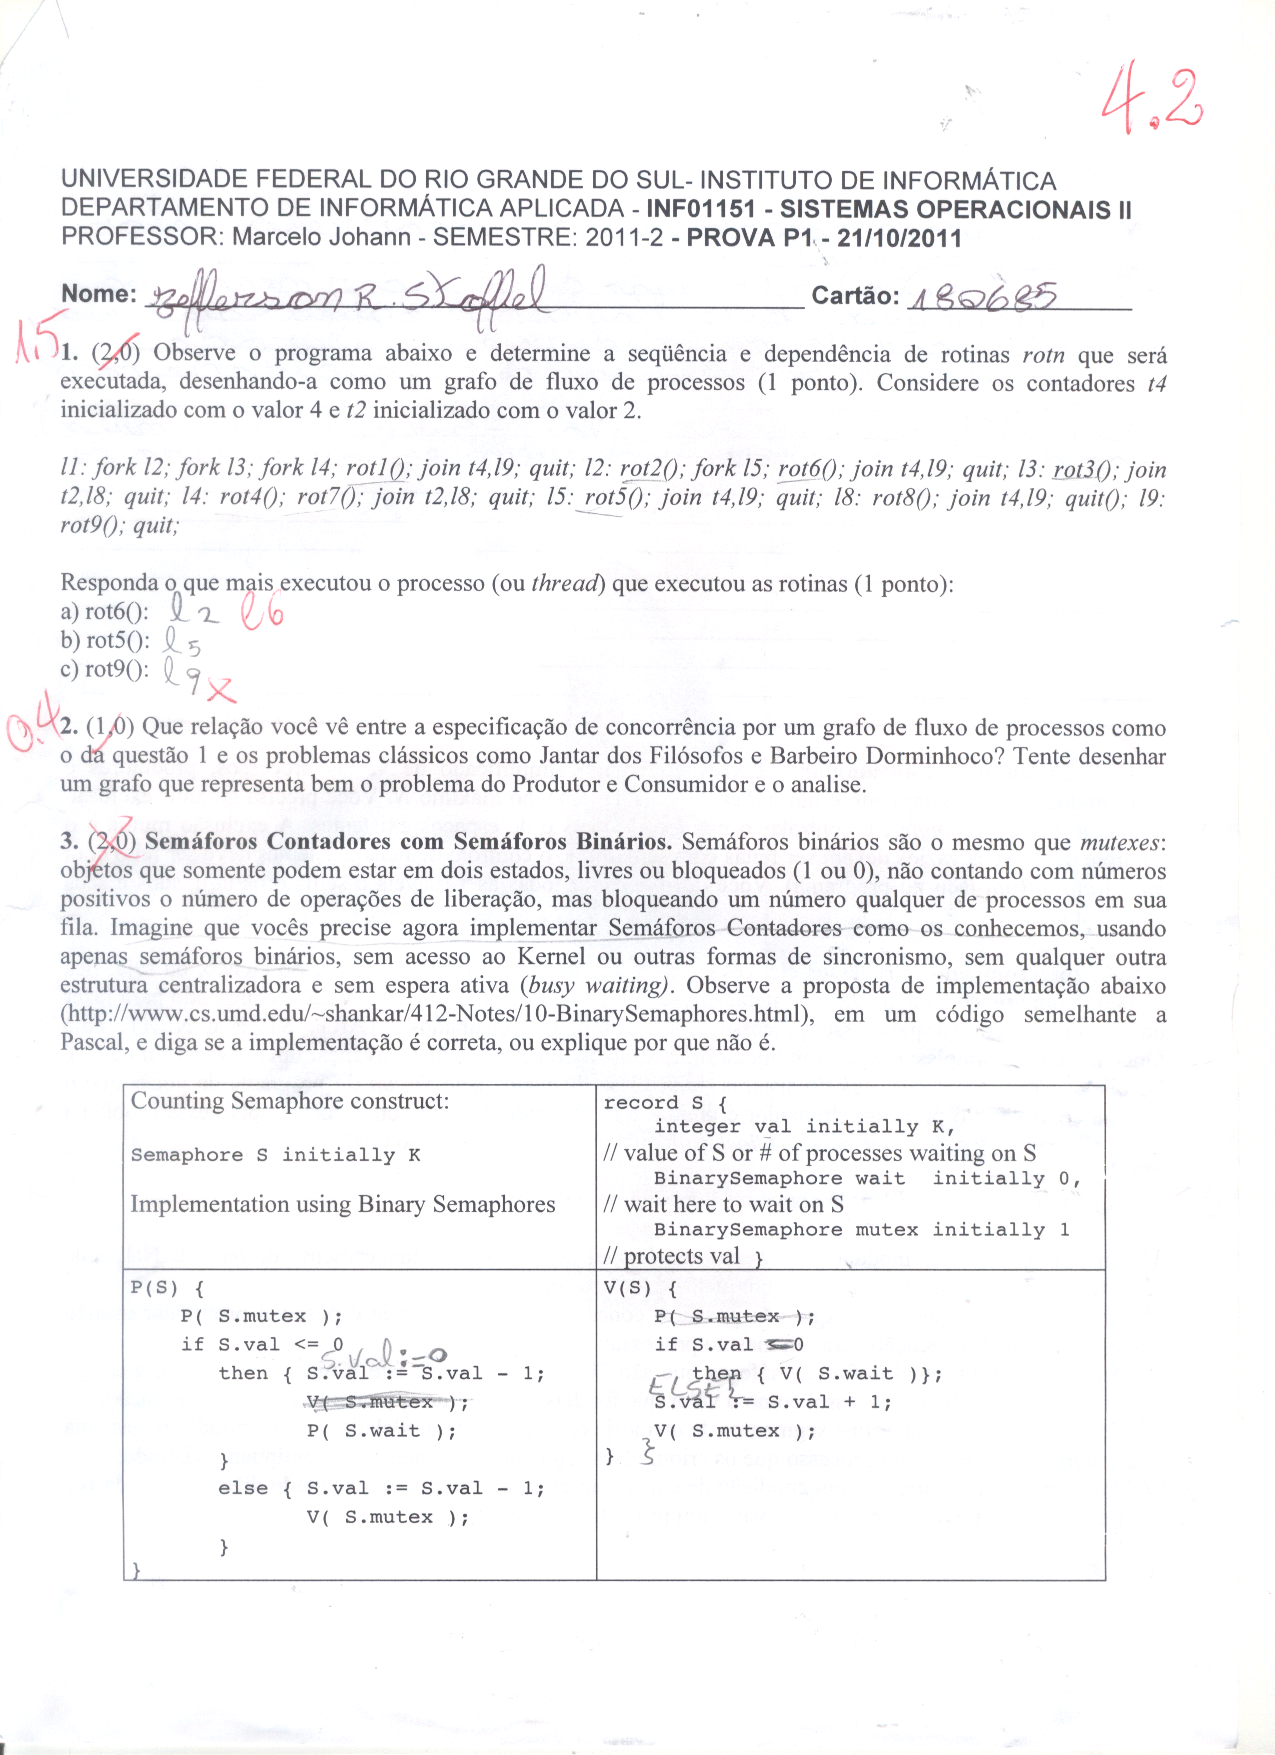 4.2
UNIVERSIDADE FEDERAL DO RIO GRANDE DO SUL- INSTITUTO DE INFORMÁTICA
DEPARTAMENTO DE INFORMÁTICA APLICADA - INF01151 - SISTEMAS OPERACIONAIS II
PROFESSOR: Marcelo Johann - SEMESTRE: 2011-2 - PROVA P1 - 21/10/2011
Nome: Jefferson R. Stoffel Cartão: 180685
1.5
1. (2,0) Observe o programa abaixo e determine a seqüência e dependência de rotinas rotn que será
executada, desenhando-a como um grafo de fluxo de processos (1 ponto). Considere os contadores t4
inicializado com o valor 4 e t2 inicializado com o valor 2.
l1: fork l2; fork l3; fork l4; rot1(); join t4,l9; quit; l2: rot2(); fork l5; rot6(); join t4,l9; quit; l3: rot3(); join
t2,l8; quit; l4: rot4(); rot7(); join t2,l8; quit; l5: rot5(); join t4,l9; quit; l8: rot8(); join t4,l9; quit(); l9:
rot9(); quit;
Responda o que mais executou o processo (ou thread) que executou as rotinas (1 ponto):
a) rot6(): l2 l6
b) rot5(): l5
c) rot9(): l9 X
0.4
2. (1,0) Que relação você vê entre a especificação de concorrência por um grafo de fluxo de processos como
o da questão 1 e os problemas clássicos como Jantar dos Filósofos e Barbeiro Dorminhoco? Tente desenhar
um grafo que representa bem o problema do Produtor e Consumidor e o analise.
3. (2,0) Semáforos Contadores com Semáforos Binários. Semáforos binários são o mesmo que mutexes:
objetos que somente podem estar em dois estados, livres ou bloqueados (1 ou 0), não contando com números
positivos o número de operações de liberação, mas bloqueando um número qualquer de processos em sua
fila. Imagine que vocês precise agora implementar Semáforos Contadores como os conhecemos, usando
apenas semáforos binários, sem acesso ao Kernel ou outras formas de sincronismo, sem qualquer outra
estrutura centralizadora e sem espera ativa (busy waiting). Observe a proposta de implementação abaixo
(http://www.cs.umd.edu/~shankar/412-Notes/10-BinarySemaphores.html), em um código semelhante a
Pascal, e diga se a implementação é correta, ou explique por que não é.
Counting Semaphore construct:
Semaphore S initially K
Implementation using Binary Semaphores
record S {
integer val initially K,
// value of S or # of processes waiting on S
BinarySemaphore wait initially 0,
// wait here to wait on S
BinarySemaphore mutex initially 1
// protects val }
P(S) {
P( S.mutex );
if S.val <= 0
S.val := 0
then { S.val := S.val - 1;
V( S.mutex );
P( S.wait );
}
else { S.val := S.val - 1;
V( S.mutex );
}
}
V(S) {
P( S.mutex );
if S.val =0
then { V( S.wait )};
ELSE {
S.val := S.val + 1;
V( S.mutex );
} }